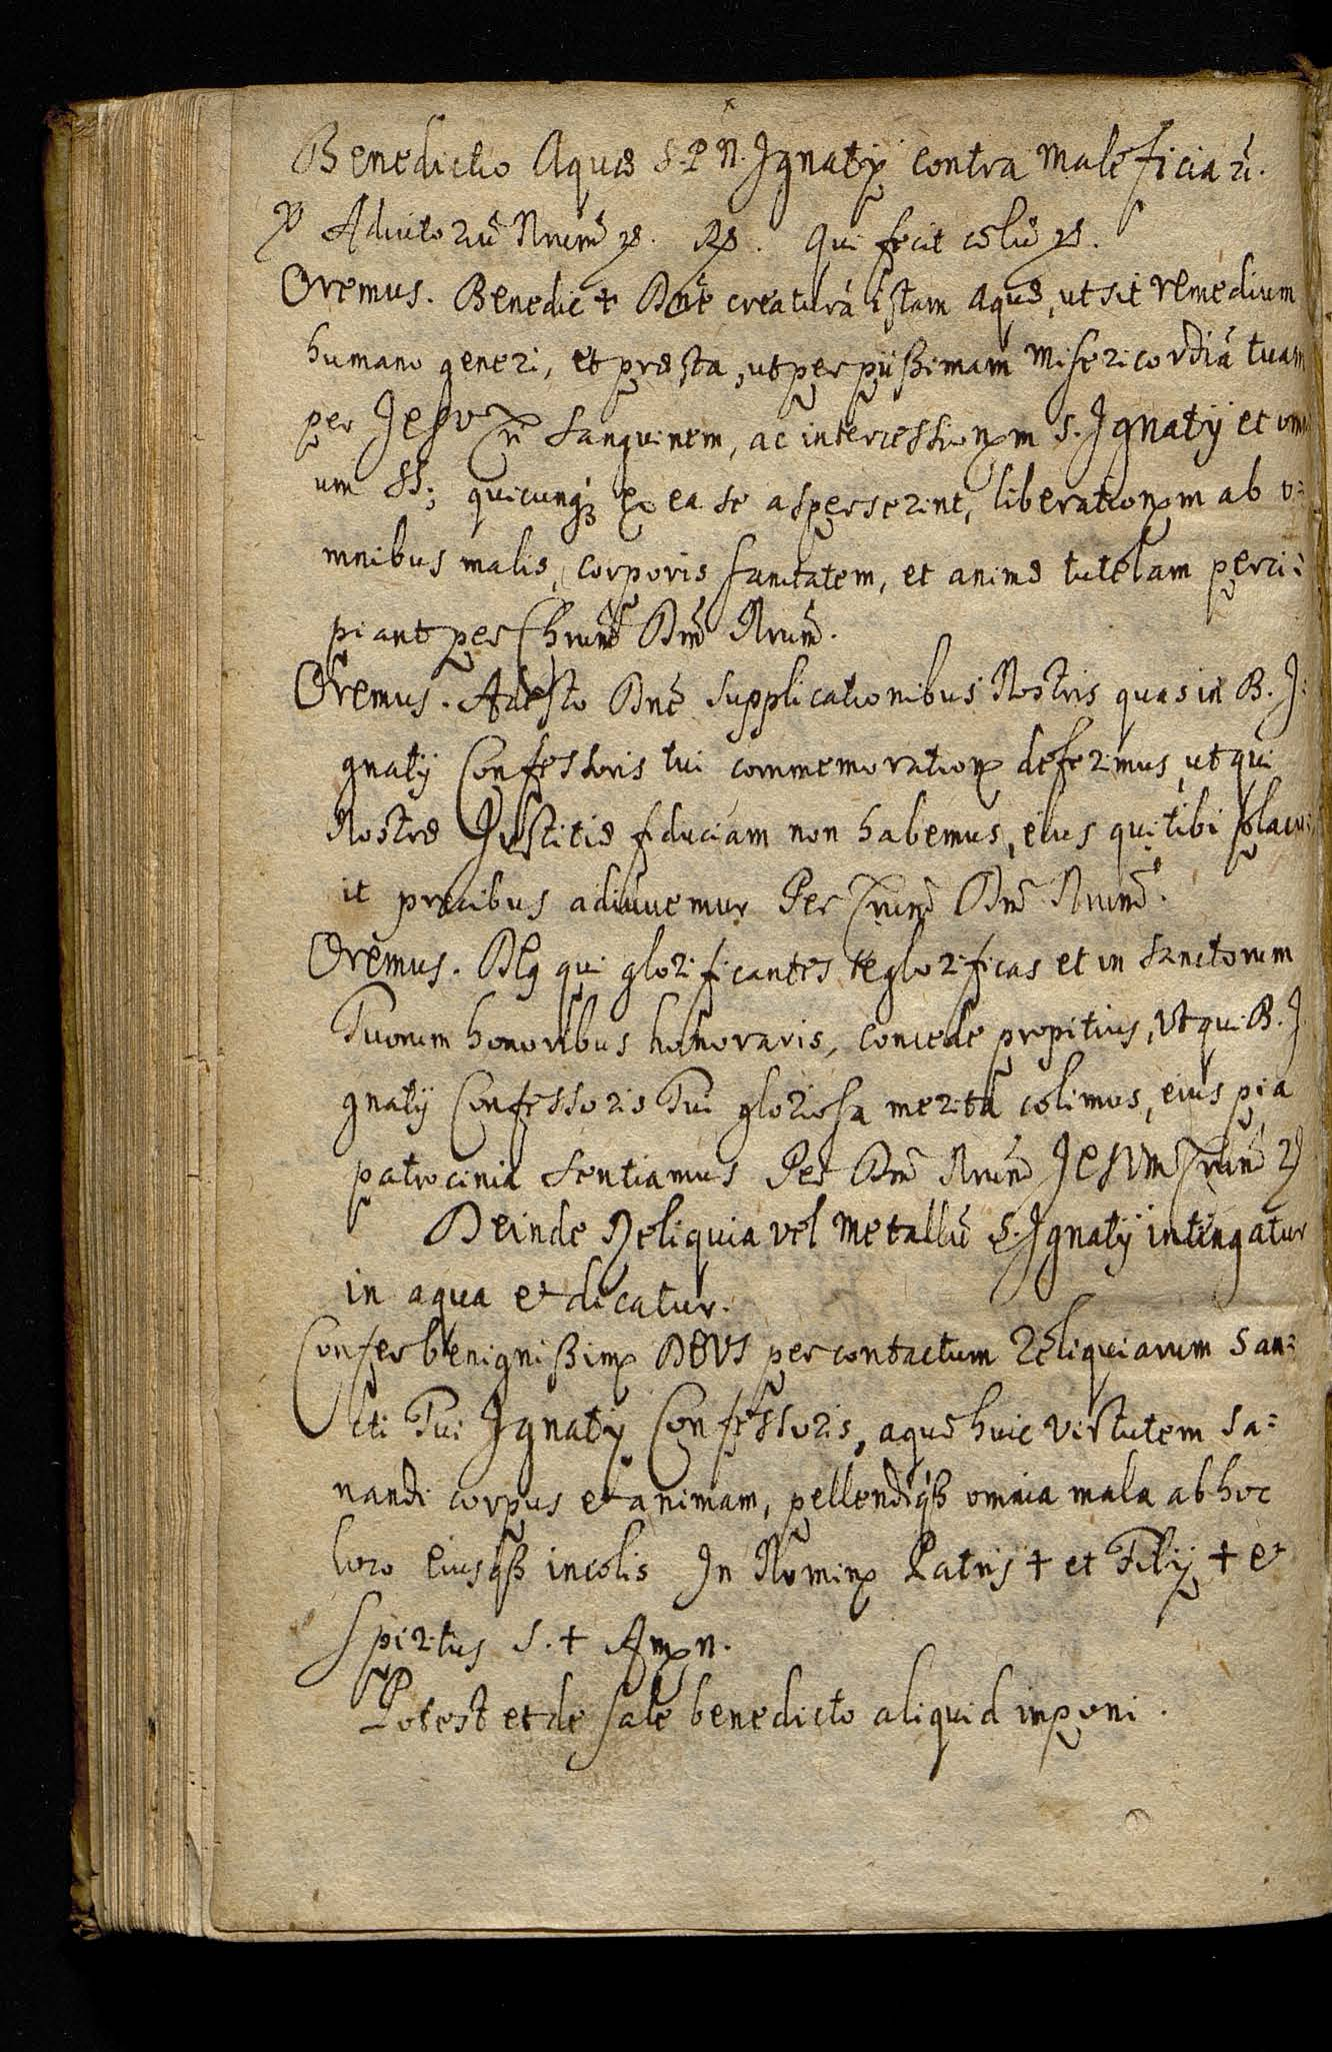 Benedictio Aquæ S. P. N. Ignatij contra maleficia
℣ Adiutoriū Nrum̄ ꝛc. ℟. Qui fecit cœlū ꝛc.
Oremus. Benedic + Dnē creaturā istam aquæ, ut sit remedium
humano generi, et præsta, ut per piißimam misericordiā tuam
per Jesu Sanguinem, ac intercessionem S. Ignatij et omni
um SS; quicunq; ex ea se asperserint, liberationem ab o=
mnibus malis, corporis sanitatem, et animæ tutelam perci=
piant per Chrum̄ Dnm̄ Nrum̄.
Oremus. Adesto Dnē supplicationibus Nostris quas in B. I=
gnatij Confessoris tui commemoratione deferimus, ut qui
Nostræ Justitiæ fiduciam non habemus, eius qui tibi placu=
it precibus adiuvemur Per Xrum̄ Dnm̄ Nrum̄.
Oremus. DEg qui glorificantes te glorificas et in Sanctorum
Tuorum honoribus honoraris, concede propitius, Ut qui B. I
gnatij Confessoris Tui gloriosa merita colimus, eius pia
patrocinia sentiamus Per Dnm̄ Nrum̄ JESUM Xrum̄ ꝛc
Deinde Reliquia vel metallū S. Ignatij intingatur
in aqua et dicatur.
Confer benignißime DEUS per contactum Reliquiarum San=
cti Tui Ignatij Confessoris, aquæ huic virtutem sa=
nandi corpus et animam, pellendiqß omnia mala ab hoc
loco eiusqß incolis In Nomine Patris + et Filij + et
Spiritus S. + Amen.
Potest et de sale benedicto aliquid imponi.